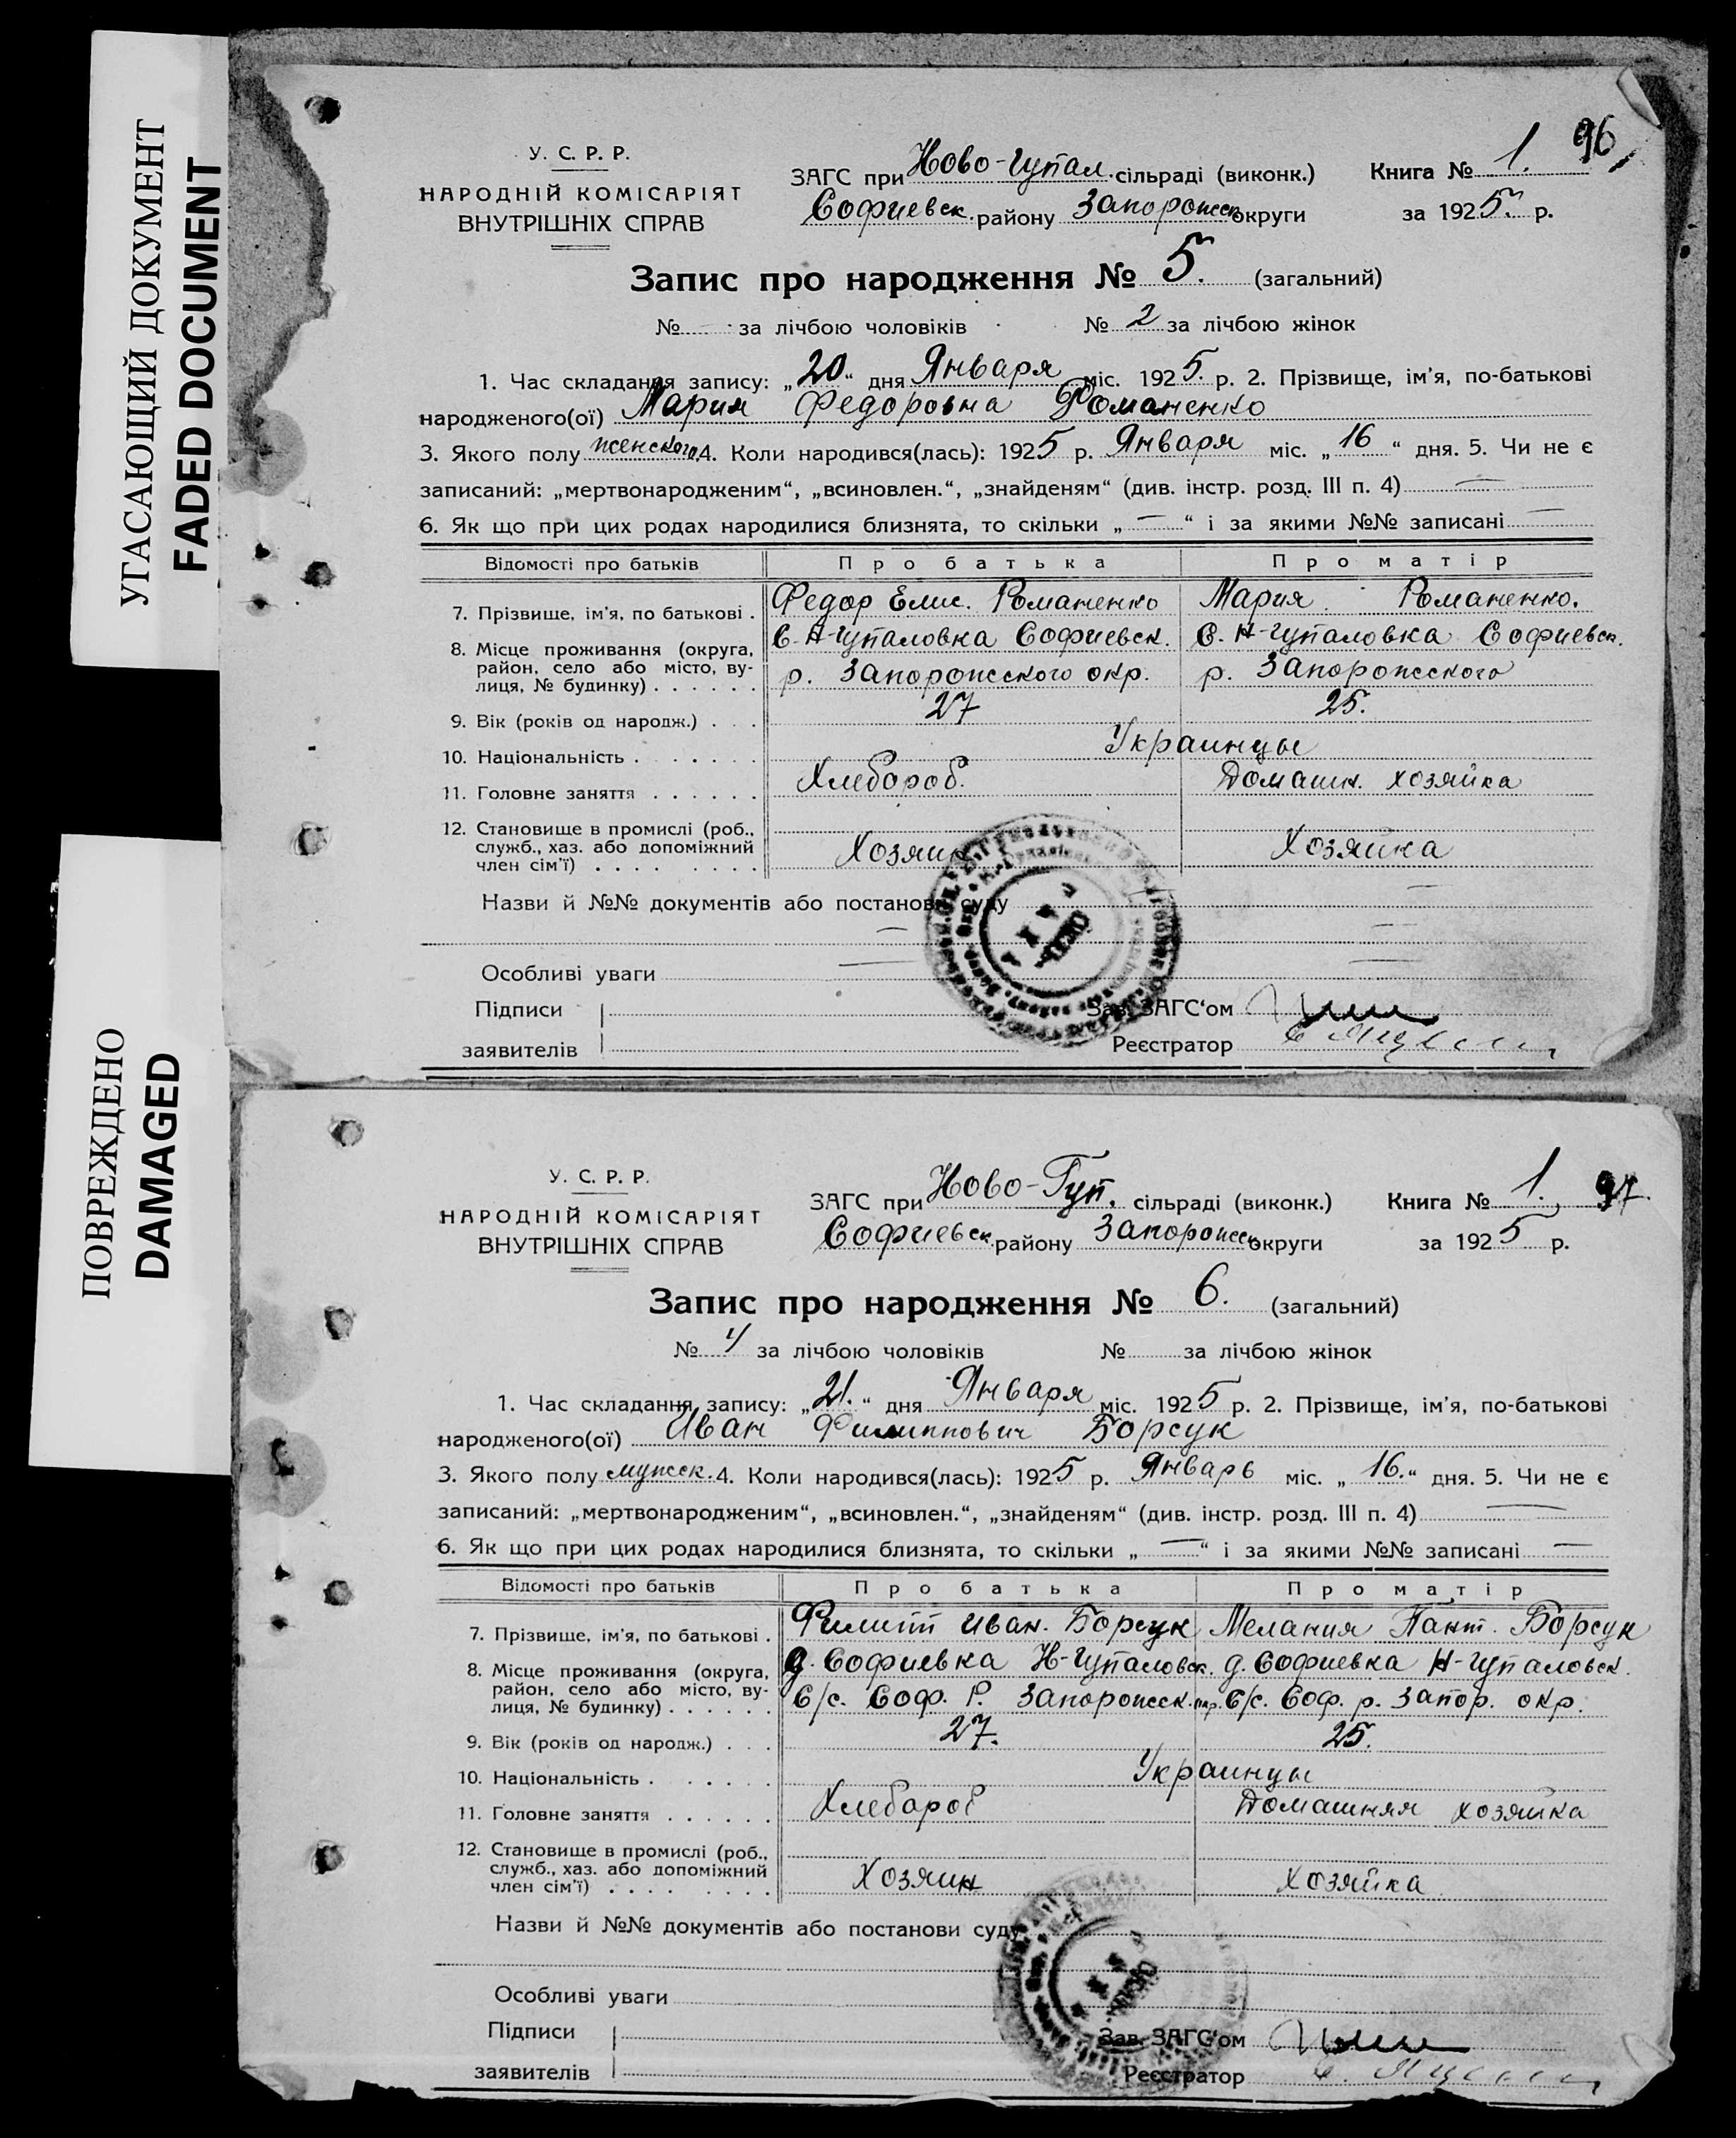 УГАСАЮЩИЙ ДОКУМЕНТ
FADED DOCUMENT
У. С. Р. Р.
НАРОДНІЙ КОМІСАРІЯТ
ВНУТРІШНІХ СПРАВ
ЗАГС при Ново-Гупал. сільраді (виконк.) Книга № 1. 96
Софиевск. району Запорожск округи за 1925 р.
Запис про народження № 5. (загальний)
№ — за лічбою чоловіків № 2 за лічбою жінок
1. Час складання запису: „20“ дня Января міс. 1925. р. 2. Прізвище, ім'я, по-батькові
народженого(ої) Мария Федоровна Романенко
3. Якого полу женского 4. Коли народився(лась): 1925 р. Января міс. „16“ дня. 5. Чи не є
записаний: „мертвонародженим“, „всиновлен.“, „знайденям“ (див. інстр. розд. III п. 4) —
6. Як що при цих родах народилися близнята, то скільки „—“ і за якими №№ записані —
Відомості про батьків Про батька Про матір
7. Прізвище, ім'я, по батькові . Федор Елис. Романенко Мария Романенко.
8. Місце проживання (округа, С. Н-Гупаловка Софиевск. С. Н-Гупаловка Софиевск.
район, село або місто, ву-
лиця, № будинку) . . . . . . р. Запорожского окр. р. Запорожского
9. Вік (років од народж.) . . . 27 25.
10. Національність . . . . . . Украинцы
11. Головне заняття . . . . . . Хлебороб. Домашн. хозяйка
12. Становище в промислі (роб.,
служб., хаз. або допоміжний Хозяин Хозяйка
член сім'ї) . . . . . . . .
Назви й №№ документів або постанови суду —
Особливі уваги
Підписи Зав. ЗАГС'ом
заявителів Реєстратор
ПОВРЕЖДЕНО
DAMAGED
У. С. Р. Р.
НАРОДНІЙ КОМІСАРІЯТ
ВНУТРІШНІХ СПРАВ
ЗАГС при Ново-Гуп. сільраді (виконк.) Книга № 1. 97.
Софиевск. району Запорожск округи за 1925 р.
Запис про народження № 6. (загальний)
№ 4 за лічбою чоловіків № за лічбою жінок
1. Час складання запису: „21.“ дня Января міс. 1925 р. 2. Прізвище, ім'я, по-батькові
народженого(ої) Иван Филиппович Борсук
3. Якого полу мужск. 4. Коли народився(лась): 1925 р. Январь міс. „16.“ дня. 5. Чи не є
записаний: „мертвонародженим“, „всиновлен.“, „знайденям“ (див. інстр. розд. III п. 4) —
6. Як що при цих родах народилися близнята, то скільки „—“ і за якими №№ записані —
Відомості про батьків Про батька Про матір
7. Прізвище, ім'я, по батькові . Филипп Иван. Борсук Мелания Пант. Борсук
8. Місце проживання (округа, д. Софиевка Н-Гупаловск. д. Софиевка Н-Гупаловск.
район, село або місто, ву-
лиця, № будинку) . . . . . . С/с. Соф. Р. Запорожск. окр. С/с. Соф. р. Запор. окр.
9. Вік (років од народж.) . . . 27. 25.
10. Національність . . . . . . Украинцы
11. Головне заняття . . . . . . Хлебороб Домашняя хозяйка
12. Становище в промислі (роб.,
служб., хаз. або допоміжний Хозяин Хозяйка
член сім'ї) . . . . . . . .
Назви й №№ документів або постанови суду
Особливі уваги
Підписи Зав. ЗАГС'ом
заявителів Реєстратор